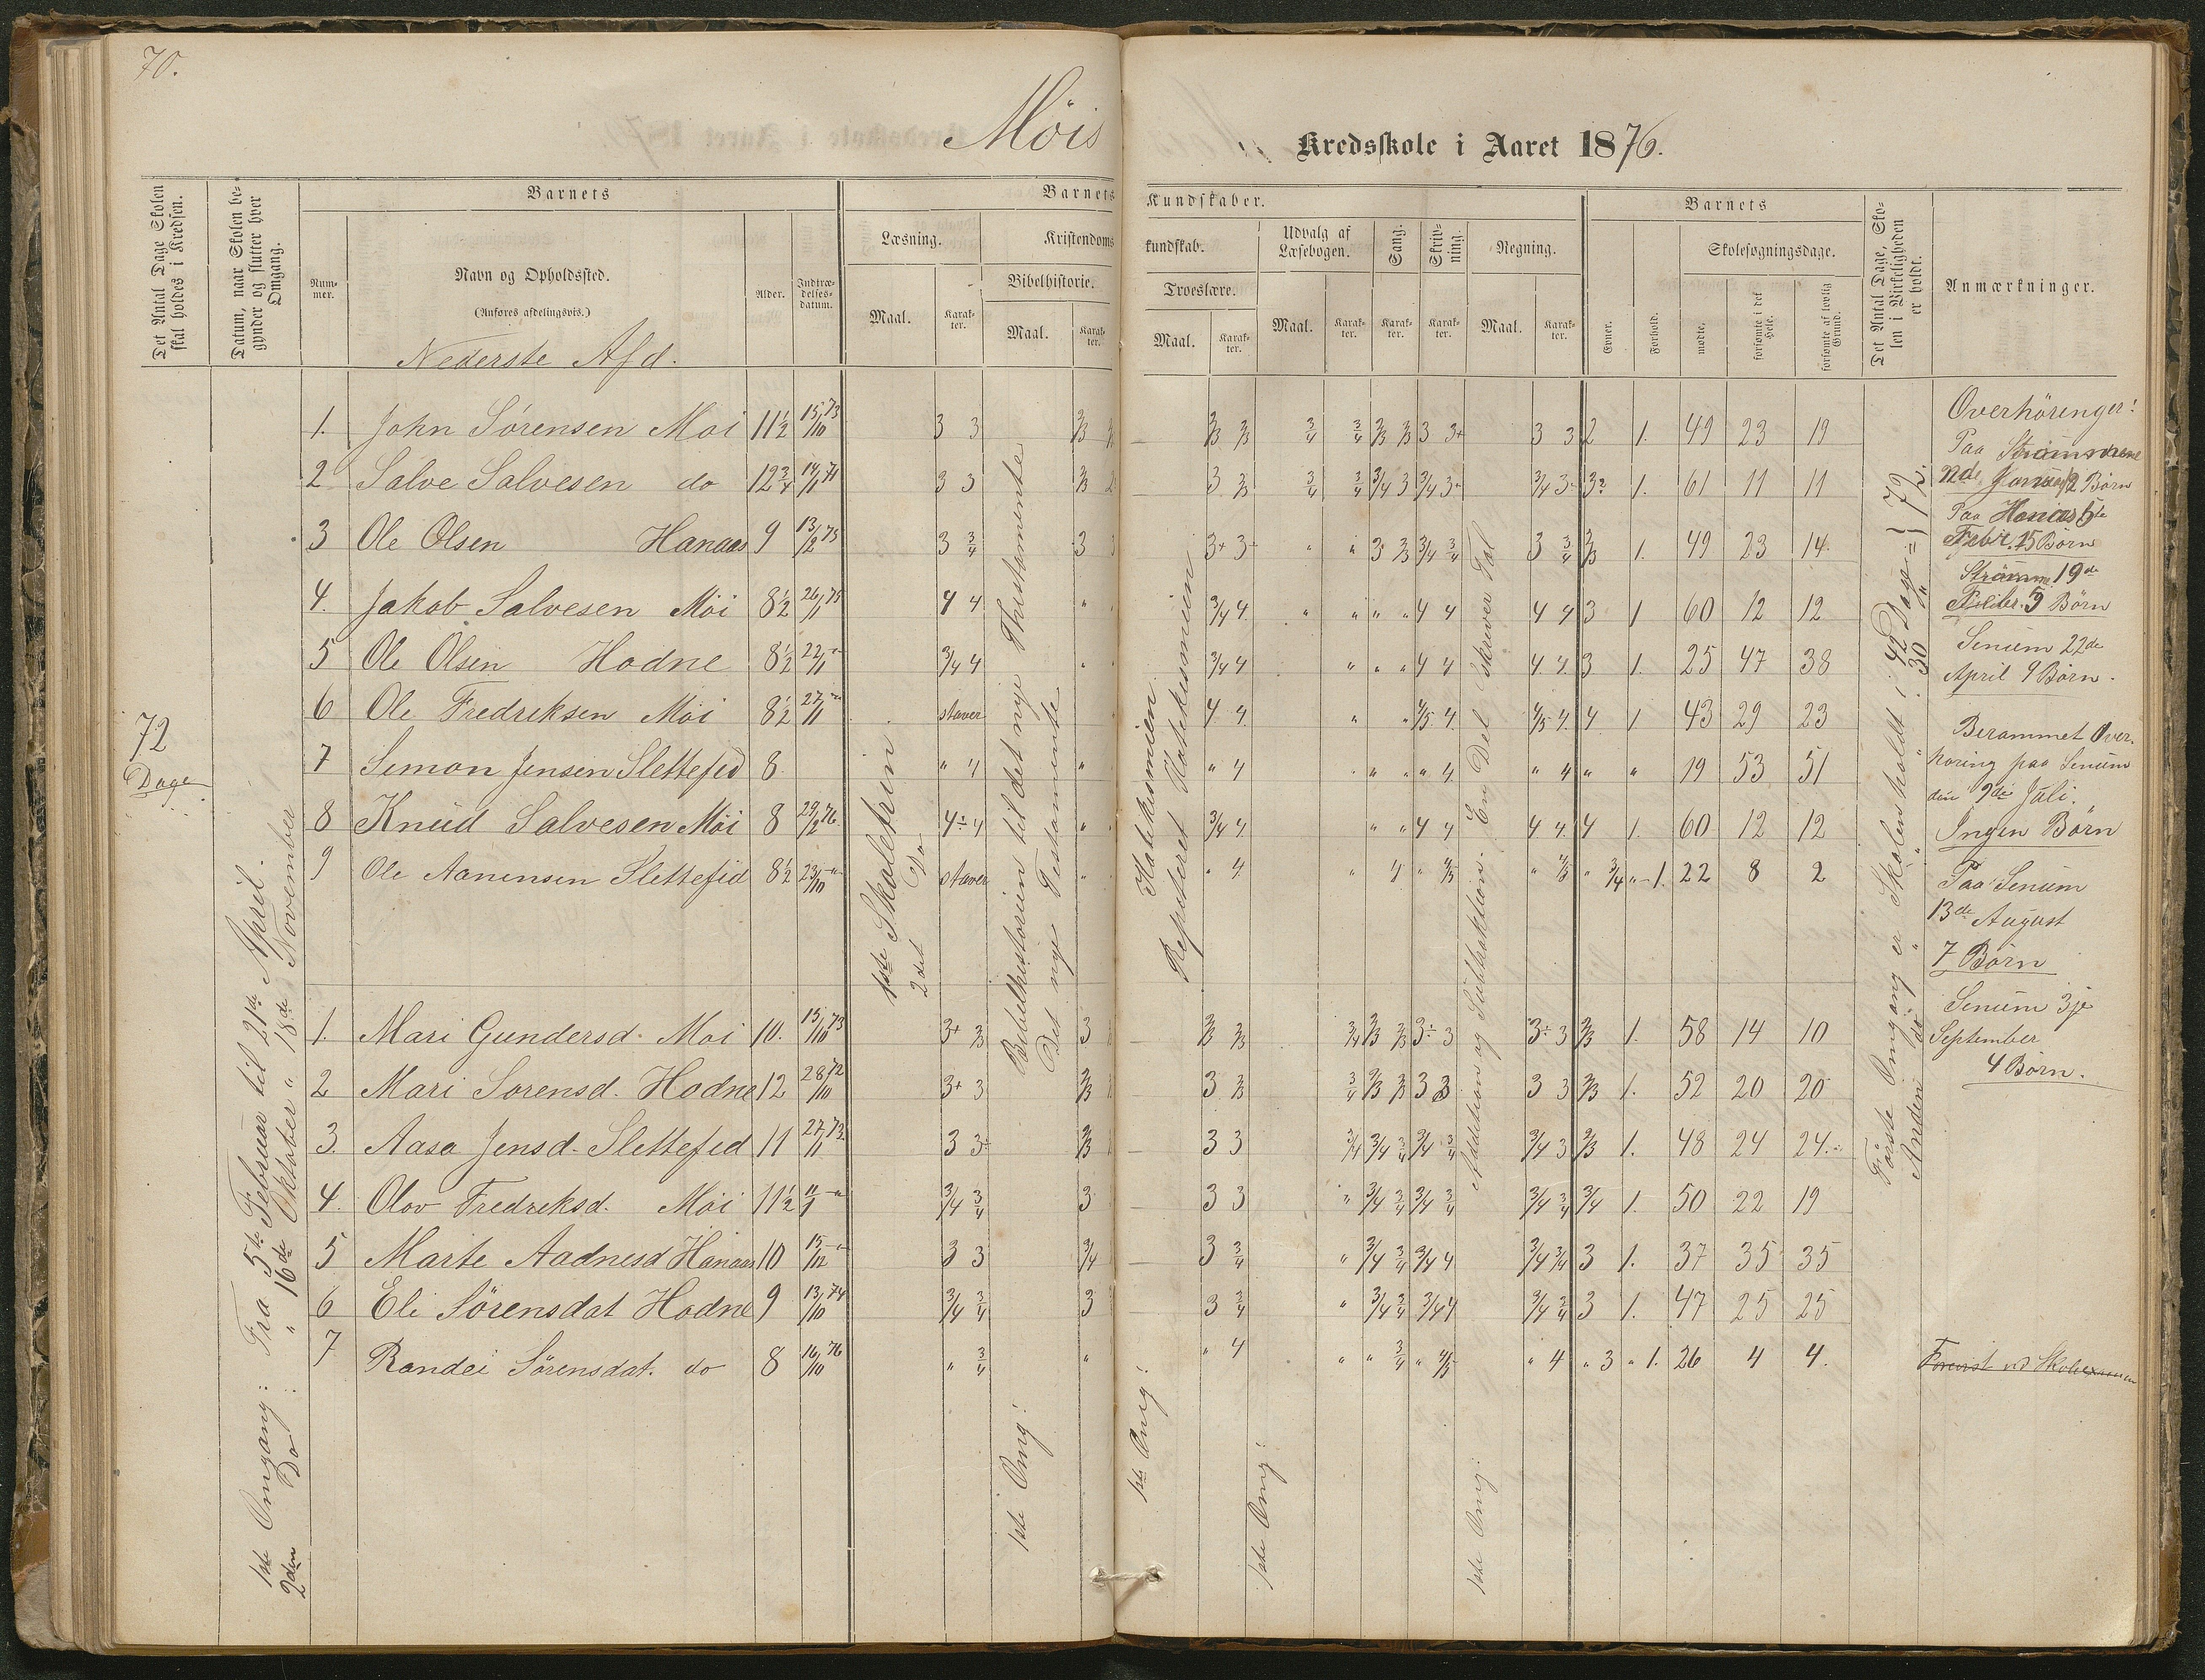 70.
Möis
Kredsskole i Aaret 1876.
Det Antal Dage Skolen skal holdes i Kredsen.
Datum, naar Skolen begynder og slutter hver Omgang.
Barnets
Nummer.
Navn og Opholdssted.
(Anføres afdelingsvis.)
Alder.
Indtrædelsesdatum.
Barnets Kundskaber.
Læsning.
Maal.
Karakter.
Kristendomskundskab.
Bibelhistorie.
Maal.
Karakter.
Troeslære.
Maal.
Karakter.
Udvalg af Læsebogen.
Maal.
Karakter.
Sang.
Karakter.
Skrivning.
Karakter.
Regning.
Maal.
Karakter.
Barnets
Evner.
Forhold.
Skolesøgningsdage.
mødte.
forsømte i det Hele.
forsømte af lovlig Grund.
Det Antal Dage, Skolen i Virkeligheden er holdt.
Anmærkninger.
Nederste Afd.
72
Dage
1ste Omgang: Fra 5te Februar til 21de April.
2den Do : " 16de Oktober " 18de November
1ste Skoletrin
2det Do
1ste Omg: Bibelhistorien til det nye Thestamente
Det nye Testamente
1ste Omg: Katekismien.
Repiteret Katekismien
1ste Omg:
1ste Omg: Addition og Subtraktion. En Del skriver Tal
Første Omgang er Skolen holdt: 42 Dage = } 72
Anden do " " 30 "
1. John Sörensen Moi 11½ 15/10 73 3 3 2/3 2/3 2/3 3/4 3/4 2/3 2/3 3 3+ 3 3 2 1. 49 23 19
2 Salve Salvesen do 12¾ 14/11 71 3 3 2/3 3 2/3 3/4 3/4 3/4 3 3/4 3÷ 3/4 3÷ 3? 1. 61 11 11
3 Ole Olsen Hanaas 9 13/12 75 3 3/4 3 3+ 3÷ " " 3 2/3 3/4 3/4 3 3/4 2/3 1. 49 23 14
4. Jakob Salvesen Möi 8½ 26/1 75 4 4 " 3/4 4 " " " " 4 4 4 4 3 1 60 12 12
5 Ole Olsen Hodne 8½ 22/1 -"- 3/4 4 " 3/4 4 " " " 4 4 4. 4. 3 1. 25 47 38
6 Ole Fredriksen Möi 8½ 27/11 -"- staver 4 4 " " 4/5 4 4/5 4. 4 1 43 29 23
7 Simon Jensen Slettefid 8 " 4 " " 4 " " " " 4 " 4 " " 19 53 51
8 Knud Salvesen Möi 8 29/2 76 4÷ 4 " 3/4 4 " " 4 4 4 4 4 1. 60 12 12
9 Ole Aanensen Slettefid 8½ 23/10 -"- staver " " 4 " 4 " 4/5 " 4/5 " 3/4 " 1. 22 8 2
1. Mari Gundersd. Moi 10. 15/10 73 3+ 2/3 3 2/3 2/3 3/4 2/3 2/3 3÷ 3 3÷ 3 2/3 1. 58 14 10
2 Mari Sorensd. Hodne 12 28/10 72 3+ 3 2/3 3 2/3 3/4 2/3 2/3 3 3 3 3 2/3 1. 52 20 20
3. Aasa Jensd. Slettefid 11 27/11 73 3 3÷ 2/3 3 3 3/4 3/4 3/4 3/4 3/4 3/4 3 2/3 1. 48 24 24
4. Olov Fredriksd. Möi 11½ 11/1 -"- 3/4 3/4 3 3 3 " 3/4 3/4 3/4 3/4 3/4 3/4 3/4 1. 50 22 19
5 Marte Aadnesd Hanaas 10 15/12 -"- 3 3 3/4 3 3/4 " 3/4 3/4 3/4 4 3/4 3/4 3 1. 37 35 35
6 Eli Sörensdat Hodne 9 13/10 74 3/4 3/4 3 3 3/4 " 3/4 3/4 3/4 4 3/4 3/4 3 1. 47 25 25
7 Randei Sörensdat. do 8 16/10 76 " 3/4 " " 4 " " 3/4 " 4/5 " 4 " 3 " 1. 26 4 4.
Overhöringer:
Paa
2de Januar 12 Börn
Paa Hanaas 6te
Febr. 15 Börn
Strömme 19de
9 Börn
Senum 22de
April 9 Börn.
Berammet Overhöring paa Senum
den 9de Juli.
Ingen Börn
Paa Senum
13de August
7 Börn
Senum 3je
September
4 Börn.
ved Skoleexamen